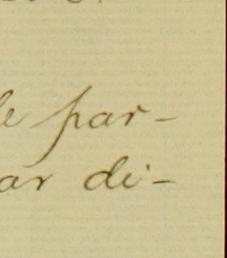 le par-
ar di-